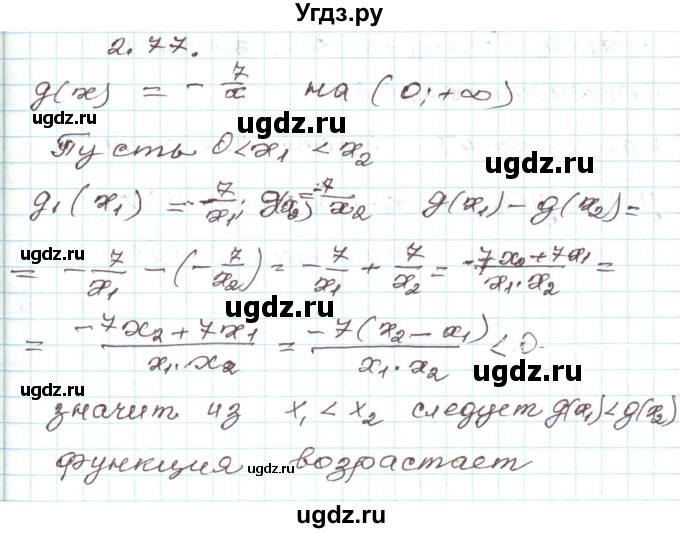 Угдз.ру
2.77.
g(x) = - 7/x на (0; +∞)
ugdz.ru
ugdz.ru
ugdz.ru
Пусть 0<x₁ <x₂
ugdz.ru
g₁(x₁) = - 7/x₁; g(x₂) = -7/x₂ g(x₁) - g(x₂) =
ugdz.ru
= - 7/x₁ - (- 7/x₂) = - 7/x₁ + 7/x₂ = -7x₂+7x₁/x₁·x₂ =
ugdz.ru
= -7x₂+7x₁/x₁·x₂ = -7(x₂-x₁)/x₁·x₂ < 0.
ugdz.ru
ugdz.ru
значит из x₁<x₂ следует g(x₁)<g(x₂)
функция возрастает
ugdz.ru
ugdz.ru
ugdz.ru